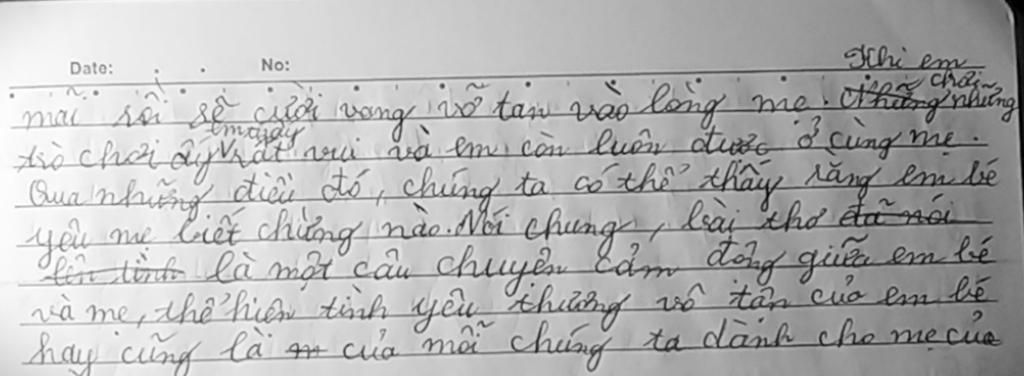 Date: No:
Khi em chơi
mãi rồi sẽ cười vang vỡ tan vào lòng mẹ. Những những
trò chơi ấy em thấy rất vui và em còn luôn được ở cùng mẹ.
Qua những điều đó, chúng ta có thể thấy rằng em bé
yêu mẹ biết chừng nào. Nói chung, bài thơ đã nói
lên tình là một câu chuyện cảm động giữa em bé
và mẹ, thể hiện tình yêu thương vô tận của em bé
hay cũng là của mỗi chúng ta dành cho mẹ của